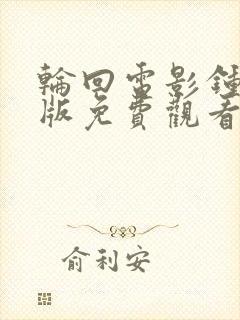 輪回雷影鍾
版免費觀看
俞利安